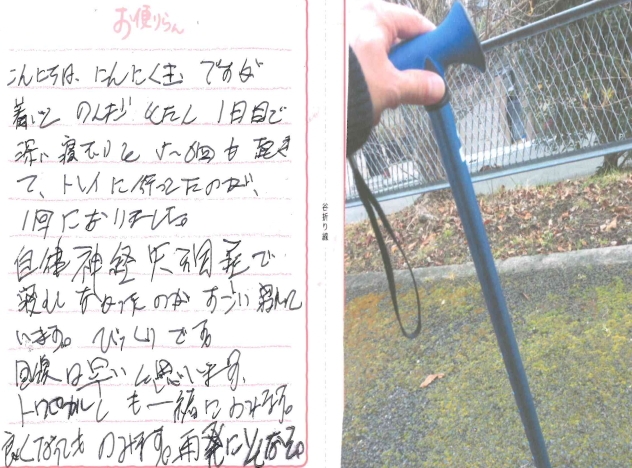 お便りらん
こんにちは、にんにく玉ですが
着いて のんだ 1日目で
深い 眠りと 5〜6回も 起き
て、トイレに行ってたのが、
1回になりました。
自律神経失調症で
寝れなかったのが すごい 眠れて
います。びっくりです。
回復は早いと思います。
も一緒に
良くなっても のみます。再発に
谷折り線